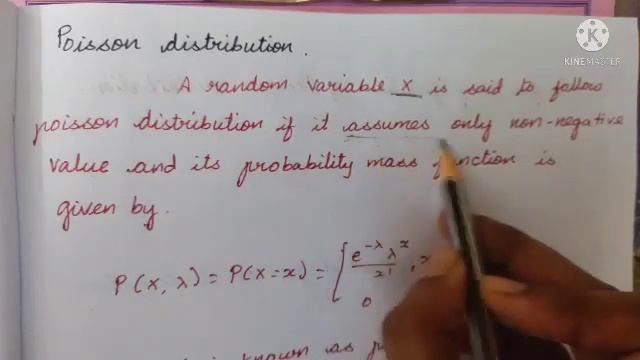 Poisson distribution.
KINEMASTER
A random variable x is said to follow
poisson distribution if it assumes only non-negative
value and its probability mass function is
given by.
P(x, λ) = P(x=x) = { e^-λ λ^x / x! , x
0
is known as